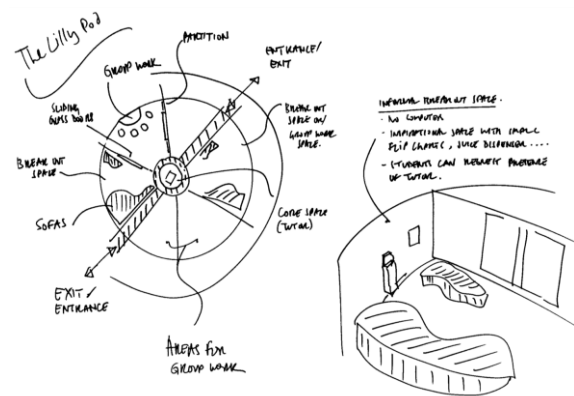 The Lilly Pod
PARTITION
GROUP WORK
ENTRANCE/
EXIT
SLIDING
GLASS DOORS
BREAK OUT
SPACE
BREAK OUT
SPACE OR/
GROUP WORK
SPACE.
SOFAS
CORE SPACE
(TUTOR)
EXIT/
ENTRANCE
AREAS FOR
GROUP WORK
INFORMAL BREAKOUT SPACE.
- NO COMPUTER
- INSPIRATIONAL SPACE WITH SMALL
FLIP CHARTS, JUICE DISPENSER ....
- STUDENTS CAN REQUEST PRESENCE
OF TUTOR.